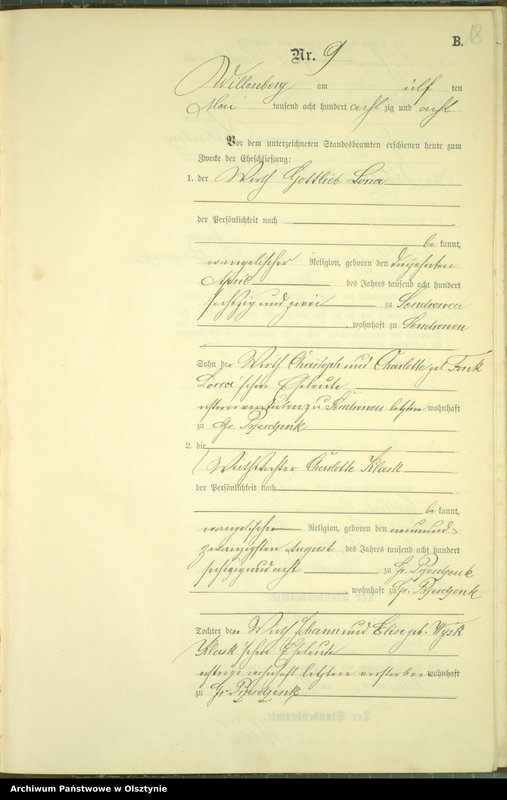 B. 18
Nr. 9
Willenberg am elf ten
Mai tausend acht hundert achtzig und acht
Vor dem unterzeichneten Standesbeamten erschienen heute zum
Zwecke der Eheschließung:
1. der Wirth Gottlieb
der Persönlichkeit nach
be kannt,
evangelischer Religion, geboren den dreizehnten
April des Jahres tausend acht hundert
sechszig und zwei zu Sendrowen
, wohnhaft zu Sendrowen
Sohn der Wirth Christoph und Charlotte geb.
schen Eheleute
zu Sendrowen letztere wohnhaft
zu Gr.
2. die
Wirthstochter Charlotte Klask
der Persönlichkeit nach
be kannt,
evangelischer Religion, geboren den neunund
zwanzigsten August des Jahres tausend acht hundert
sechszig und acht zu Gr.
, wohnhaft zu Gr.
Tochter der Wirth Johann und Elise geb.
Klask'schen Eheleute
wohnhaft letztere verstorben wohnhaft
zu Gr.
Archiwum Państwowe w Olsztynie